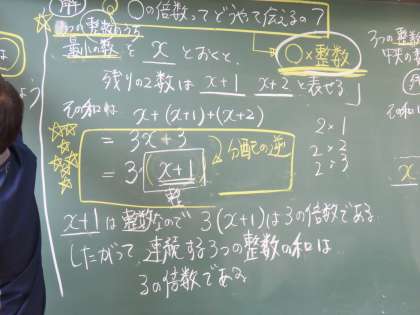 解 Q ○の倍数ってどうやって伝えるの?
3つの整数のうち
最小の数を x とおくと、
○×整数
残りの2数は x+1 x+2 と表せる
その和は x+(x+1)+(x+2)
= 3x+3
= 3(x+1)
整数
分配の逆
2×1
2×2
2×3
x+1は整数なので 3(x+1)は3の倍数である
したがって、連続する3つの整数の和は
3の倍数である
3つの整数
その和は
x